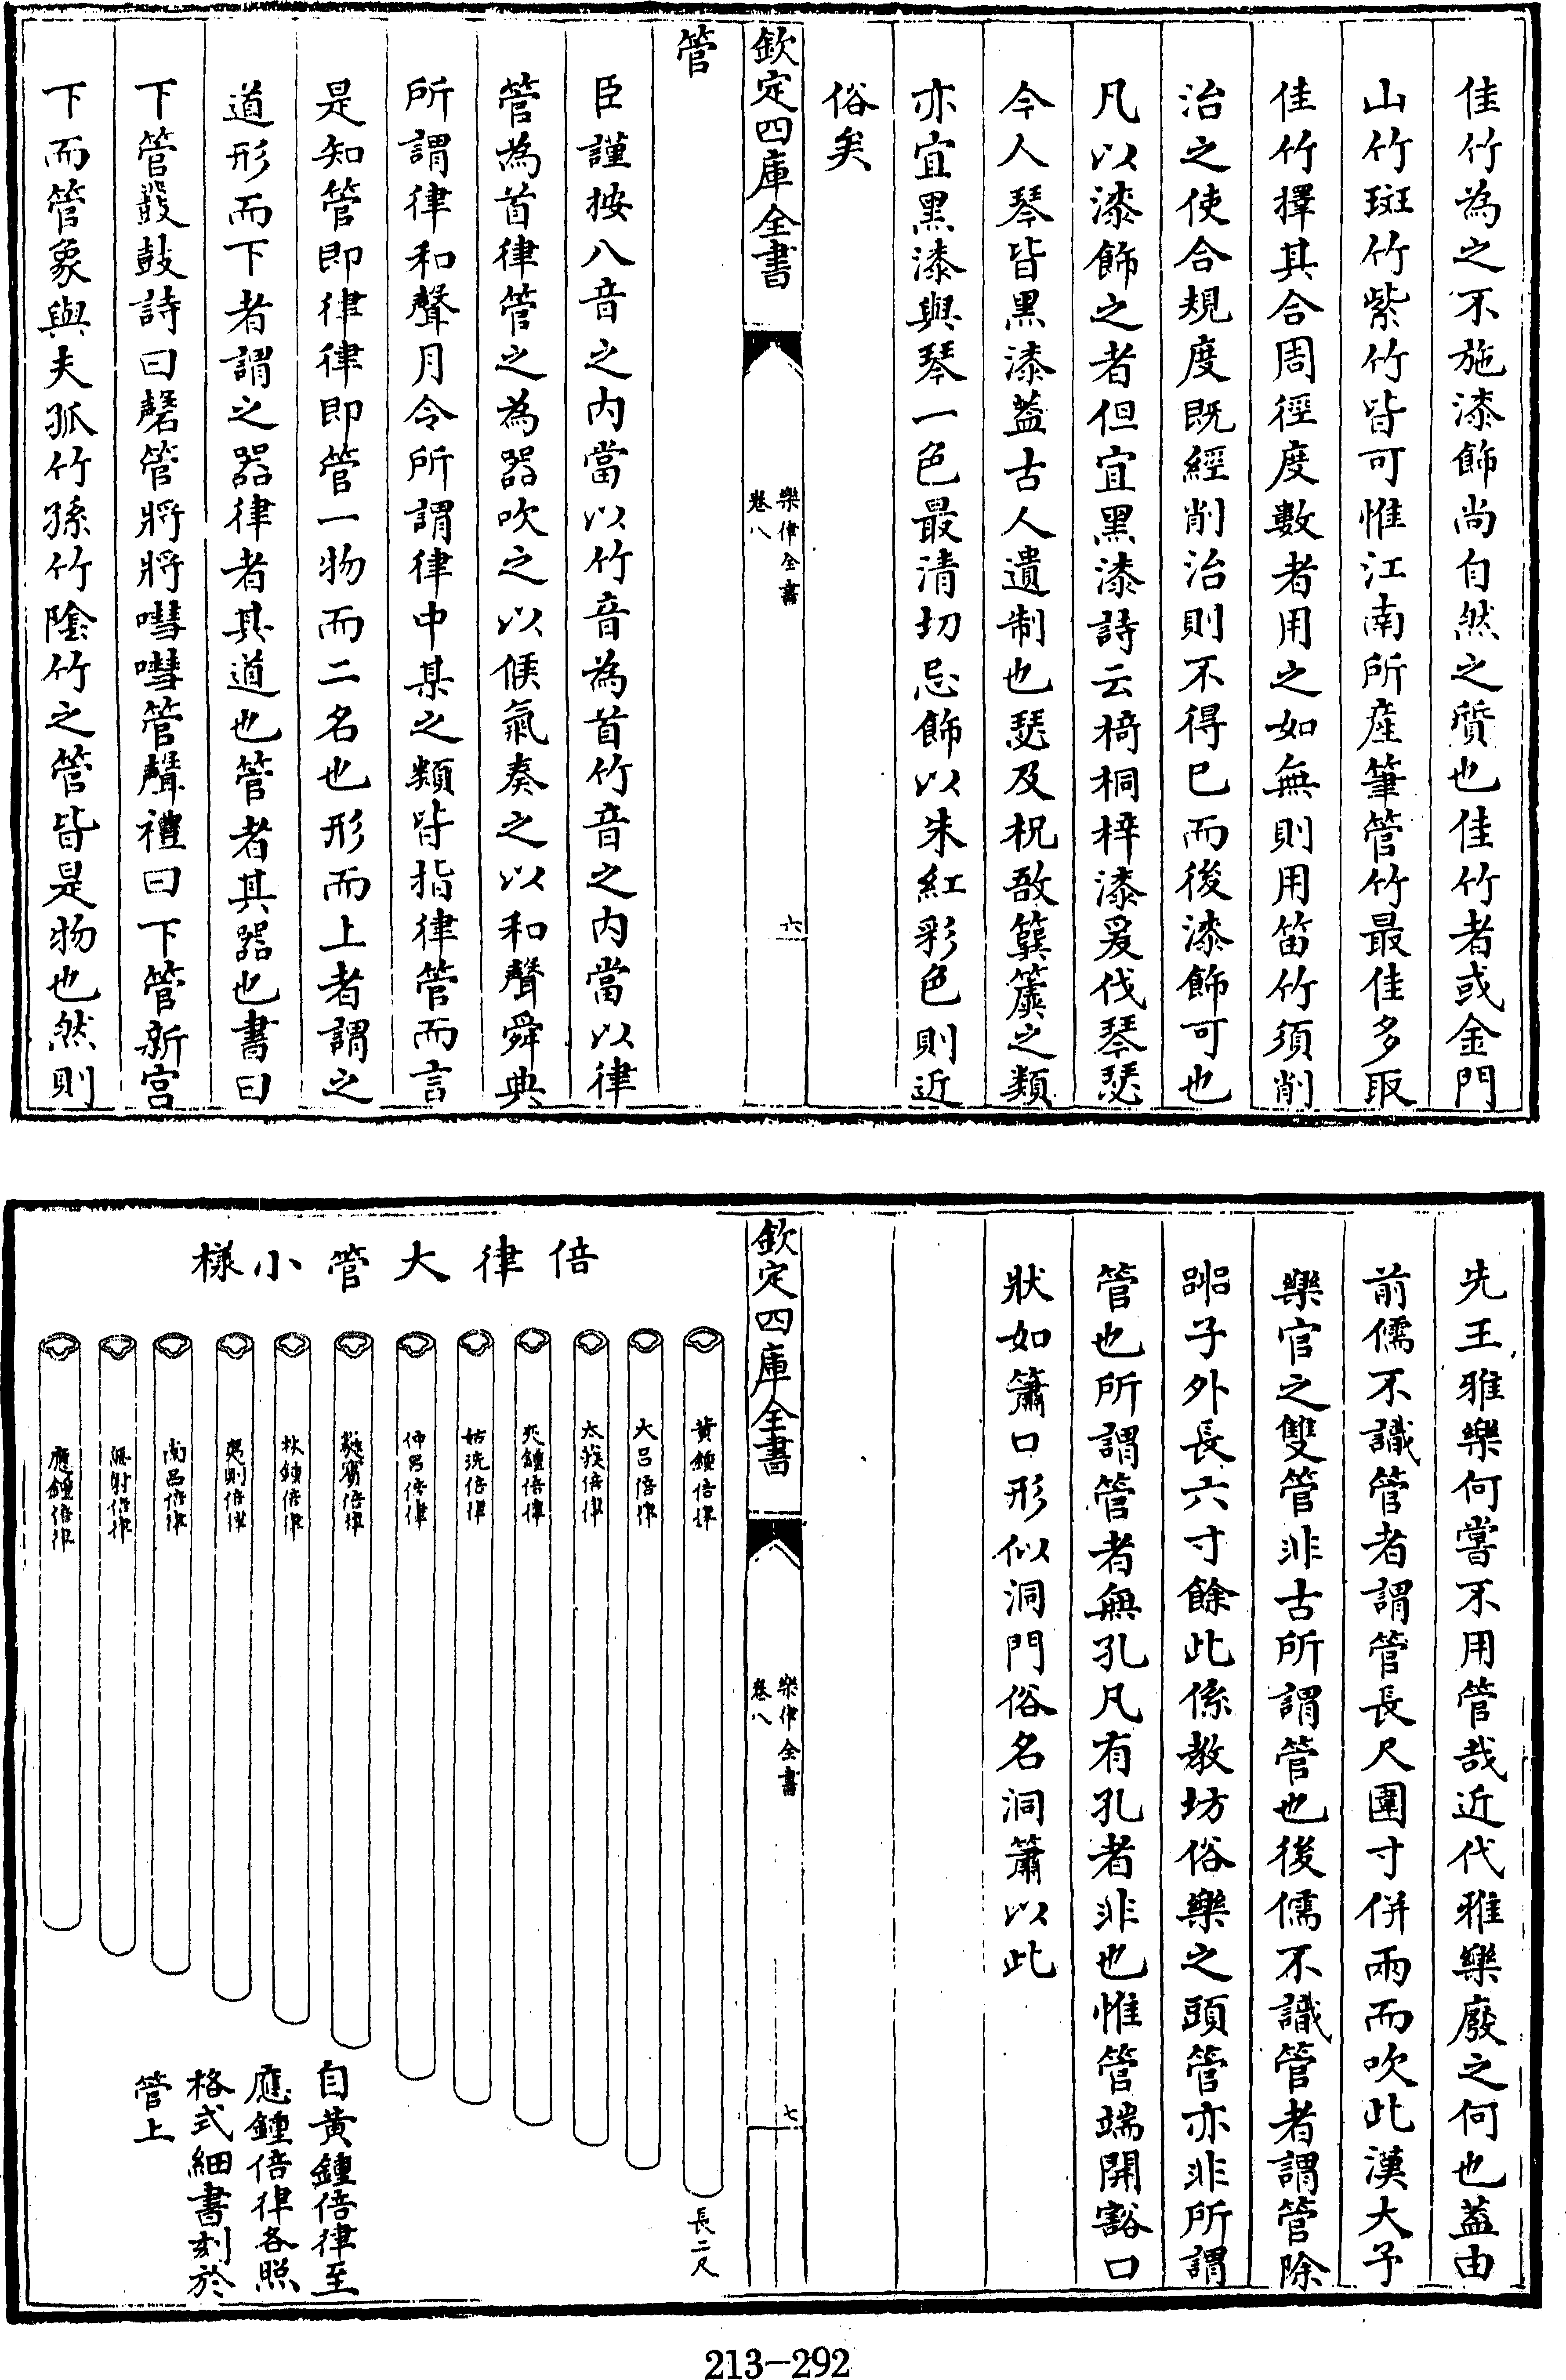 佳竹為之不施漆飾尚自然之質也佳竹者或金門
山竹斑竹紫竹皆可惟江南所産筆管竹最佳多取
佳竹擇其合周徑度數者用之如無則用笛竹須削
治之使合規度既經削治則不得已而後漆飾可也
凡以漆飾之者但宜黑漆詩云椅桐梓漆爰伐琴瑟
今人琴皆黑漆葢古人遺制也瑟及柷敔簨簴之類
亦宜黑漆與琴一色最清切忌飾以朱紅彩色則近
俗矣
欽定四庫全書
樂律全書
卷八
六
管
臣謹按八音之内當以竹音為首竹音之内當以律
管為首律管之為器吹之以候氣奏之以和聲舜典
所謂律和聲月令所謂律中某之類皆指律管而言
是知管即律律即管一物而二名也形而上者謂之
道形而下者謂之器律者其道也管者其器也書曰
下管鼗鼓詩曰磬管將將嘒嘒管聲禮曰下管新宫
下而管象與夫孤竹孫竹陰竹之管皆是物也然則
先王雅樂何嘗不用管哉近代雅樂廢之何也葢由
前儒不識管者謂管長尺圍寸併兩而吹此漢大予
樂官之雙管非古所謂管也後儒不識管者謂管除
𠾅子外長六寸餘此係教坊俗樂之頭管亦非所謂
管也所謂管者無孔凡有孔者非也惟管端開豁口
狀如簫口形似洞門俗名洞簫以此
欽定四庫全書
樂律全書
卷八
七
倍律大管小樣
黄鍾倍律
長二尺
大吕倍律
太蔟倍律
夾鍾倍律
姑洗倍律
仲吕倍律
蕤賓倍律
林鍾倍律
夷則倍律
南吕倍律
無射倍律
應鍾倍律
自黄鍾倍律至
應鍾倍律各照
格式細書刻於
管上
213-292